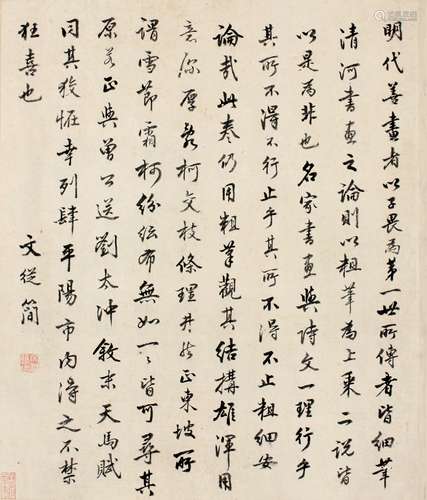 明代善畫者以子畏為第一世所傳者皆細筆
清河書畫之論則以粗筆為上乘二說皆
以是為非也名家書畫與詩文一理行乎
其所不得不行止乎其所不得不止粗細安
論哉此奏仍用粗筆觀其結構雄渾用
意深厚喬柯交枝條理井然正東坡所
謂雪節霜柯紛紜布無如一一皆可尋其
原若正與魯公送劉太沖敘末天馬賦
同其狡怪幸列肆平陽市內得之不禁
狂喜也
文從簡